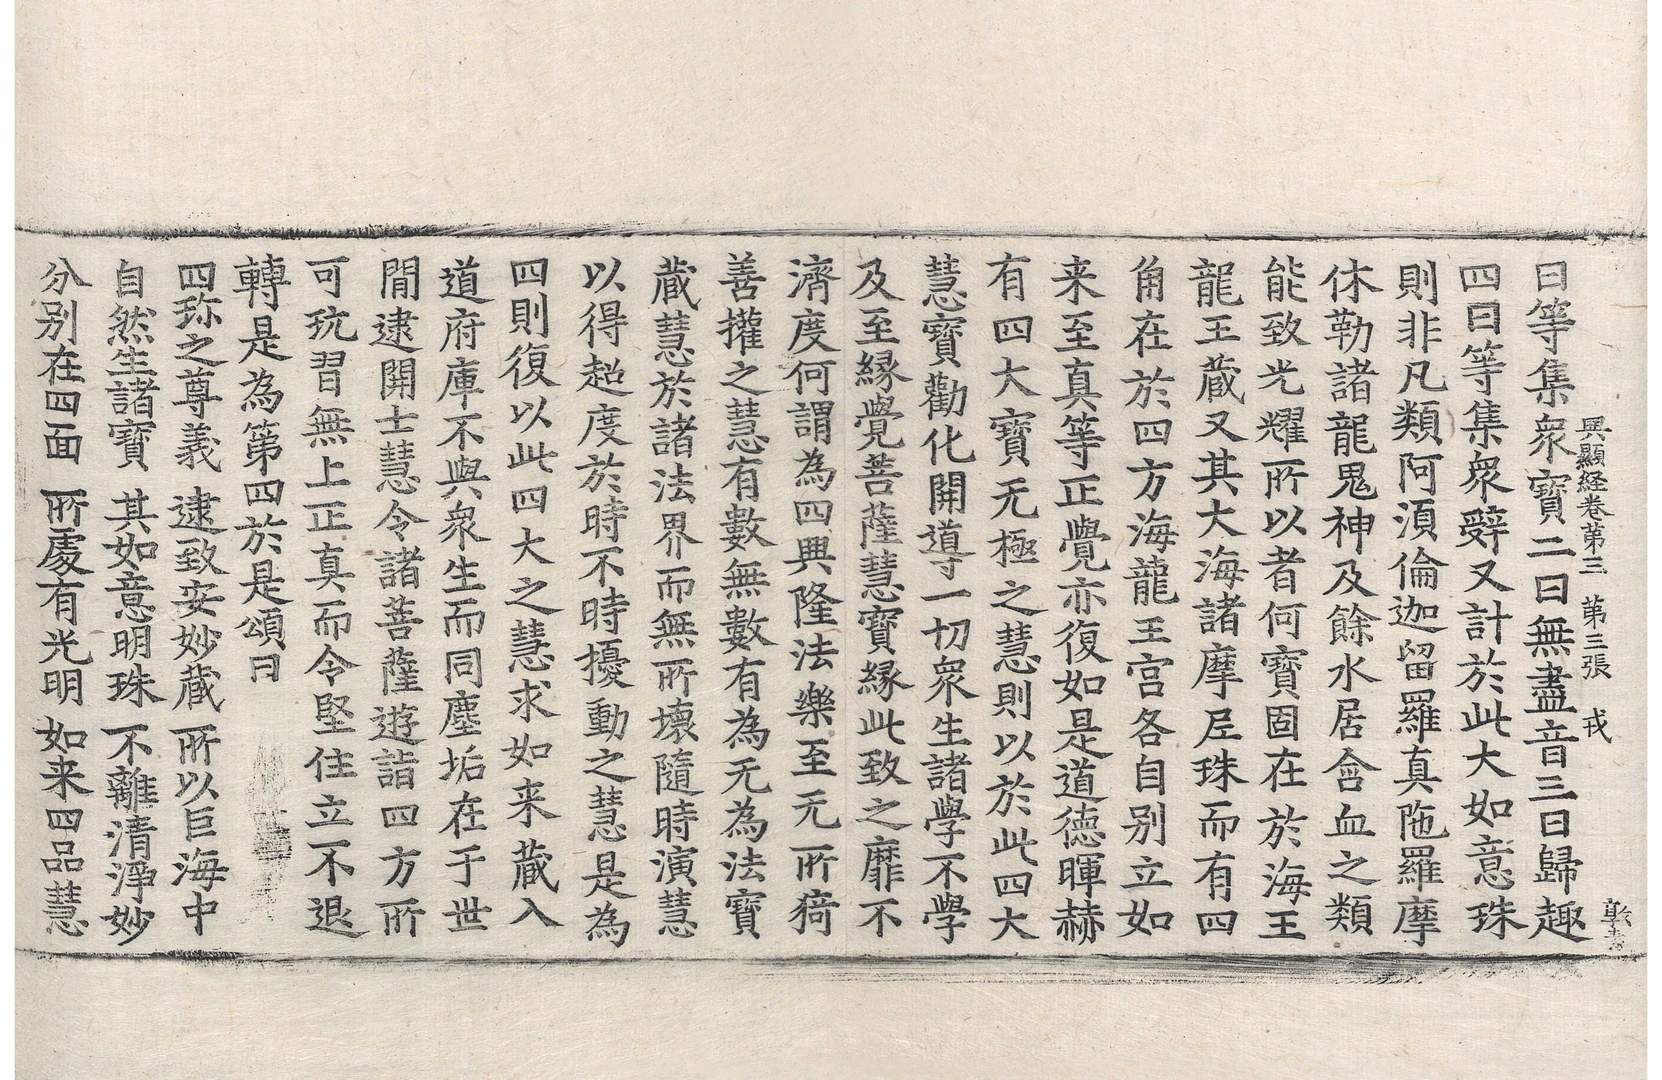 興顯経卷第三　第三張　戎
曰等集衆寶二曰無盡音三曰歸趣
四曰等集衆辭又計於此大如意珠
則非凡類阿湏倫迦留羅真陁羅摩
休勒諸龍鬼神及餘水居含血之類
能致光耀所以者何寶固在於海王
龍王蔵又其大海諸摩尼珠而有四
角在於四方海龍王宫各自别立如
来至真等正覺亦復如是道德暉赫
有四大寶无極之慧則以於此四大
慧寶勸化開導一切衆生諸學不學
及至緣覺菩薩慧寶緣此致之靡不
濟度何謂為四興隆法樂至无所猗
善攉之慧有數無數有為无為法寶
蔵慧於諸法界而無所壞隨時演慧
以得超度於時不時擾動之慧是為
四則復以此四大之慧求如来蔵入
道府庫不與衆生而同塵垢在于世
閒逮開士慧令諸菩薩遊詣四方所
可玩習無上正真而令堅住立不退
轉是為第四於是頌曰
四珎之尊義　逮致安妙蔵　所以巨海中
自然生諸寶　其如意明珠　不離清淨妙
分别在四面　所處有光明　如来四品慧